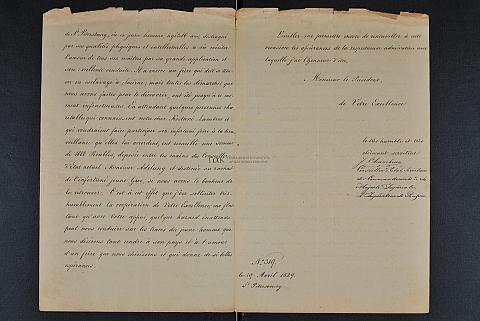 de St Pétersbourg, où ce jeune homme âgé de 16 ans, distingué
par ses qualités physiques et intellectuelles a su mériter
l'amour de tous ses maîtres par sa grande application et
son excellente conduite. Il a encore un frère qui doit se trou-
ver en esclavage à Smirne; mais toutes les démarches que
nous avons faites pour le découvrir, ont été jusqu'à ce mo-
ment infructueuses. En attendant quelques personnes cha-
ritables qui connaissent notre cher Kostaeri Lambros et
qui voudraient faire participer son infortuné frère à la bien-
veillance qu'elles lui accordent, ont recueilli une somme
de Roubles, déposée entre les mains du Conseiller
d'Etat actuel Monsieur Adelung et destinée au rachat
de l'infortuné jeune Grec, si nous avons le bonheur de
le retrouver. C'est à cet effet que j'ose solliciter très-
humblement la coopération de Votre Excellence, me flat-
tant qu'avec Votre appui, quelque hazard inattendu
peut nous conduire sur les traces du jeune homme que
nous désirons tant rendre à son pays et à l'amour
d'un frère que nous chérissons et qui donne de si belles
espérances.
Veuillez me permettre encore de renouveller à cette
occasion les assurances de la respectueuse admiration avec
laquelle j'ai l'honneur d'être,
Monsieur le Président,
de Votre Excellence
le très humble et très
dévoué serviteur
Conseiller d'Etat, Secrétaire
des Commandements de Sa
Majesté Impériale
l'Impératrice de Russie
No. 319.
le 19 Avril 1829
St Pétersbourg